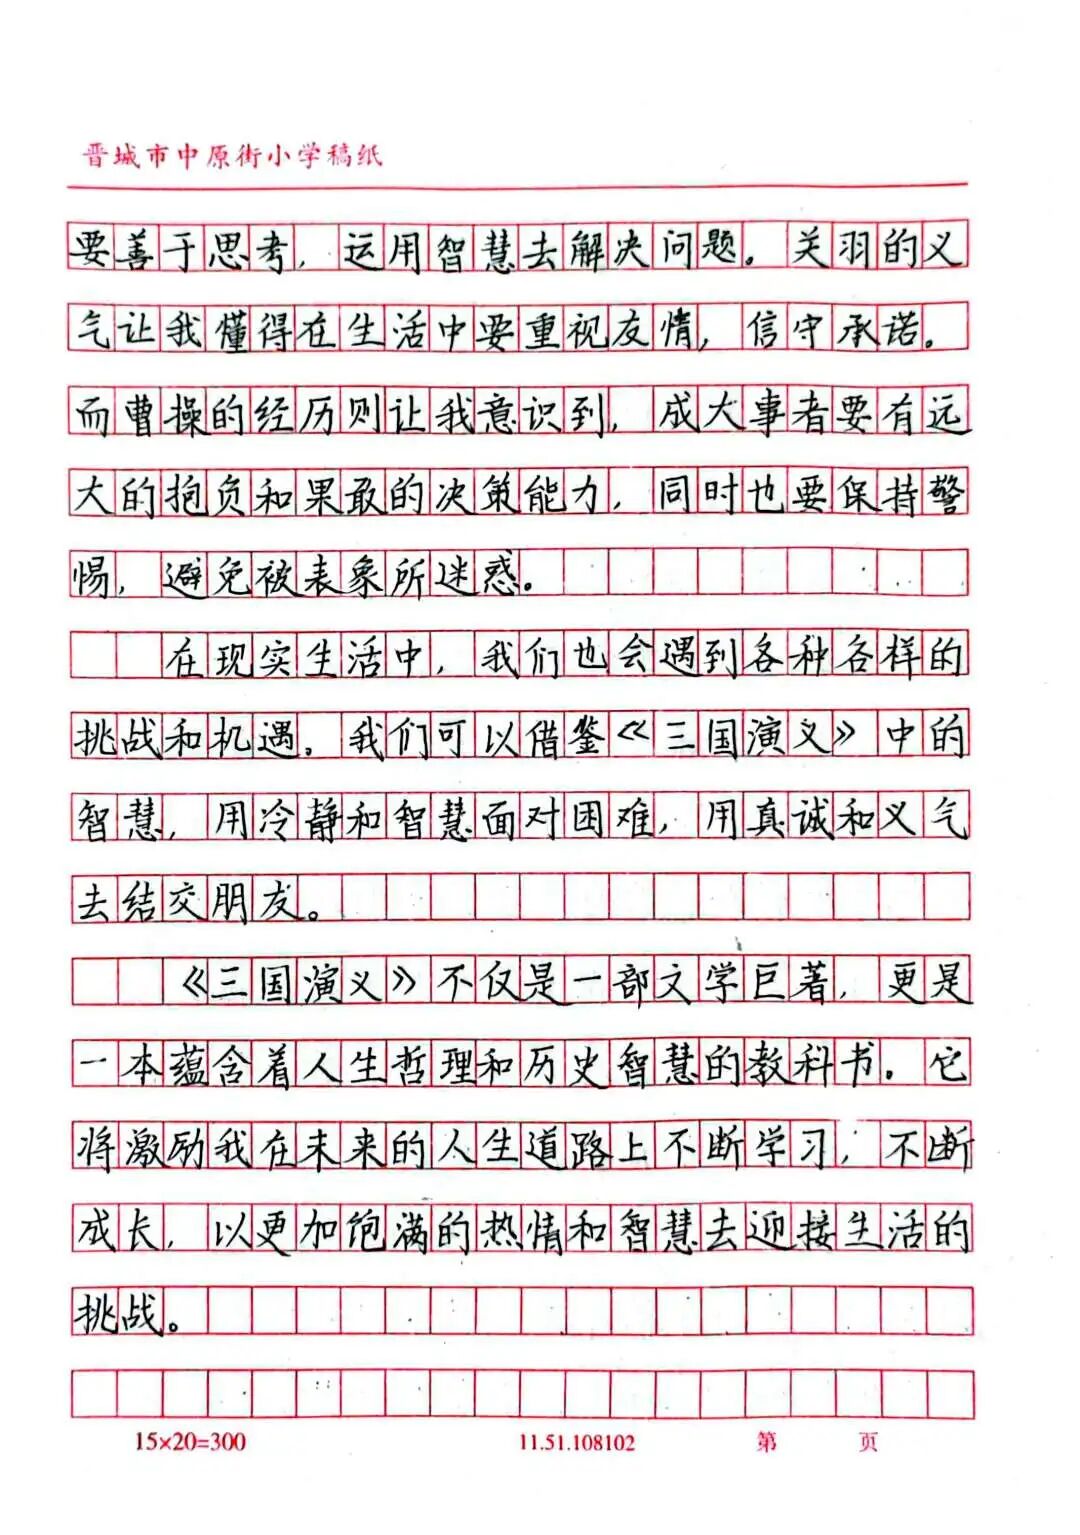 晋城市中原街小学稿纸
要善于思考，运用智慧去解决问题。关羽的义
气让我懂得在生活中要重视友情，信守承诺。
而曹操的经历则让我意识到，成大事者要有远
大的抱负和果敢的决策能力，同时也要保持警
惕，避免被表象所迷惑。
在现实生活中，我们也会遇到各种各样的
挑战和机遇。我们可以借鉴《三国演义》中的
智慧，用冷静和智慧面对困难，用真诚和义气
去结交朋友。
《三国演义》不仅是一部文学巨著，更是
一本蕴含着人生哲理和历史智慧的教科书。它
将激励我在未来的人生道路上不断学习，不断
成长，以更加饱满的热情和智慧去迎接生活的
挑战。
15×20=300 11.51.108102 第 页